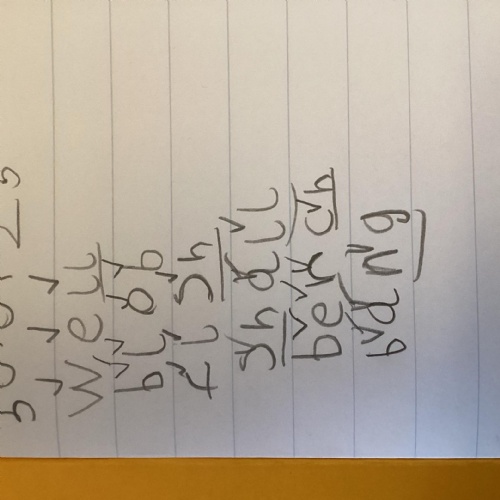 well
blob
fish
shall
bench
bang